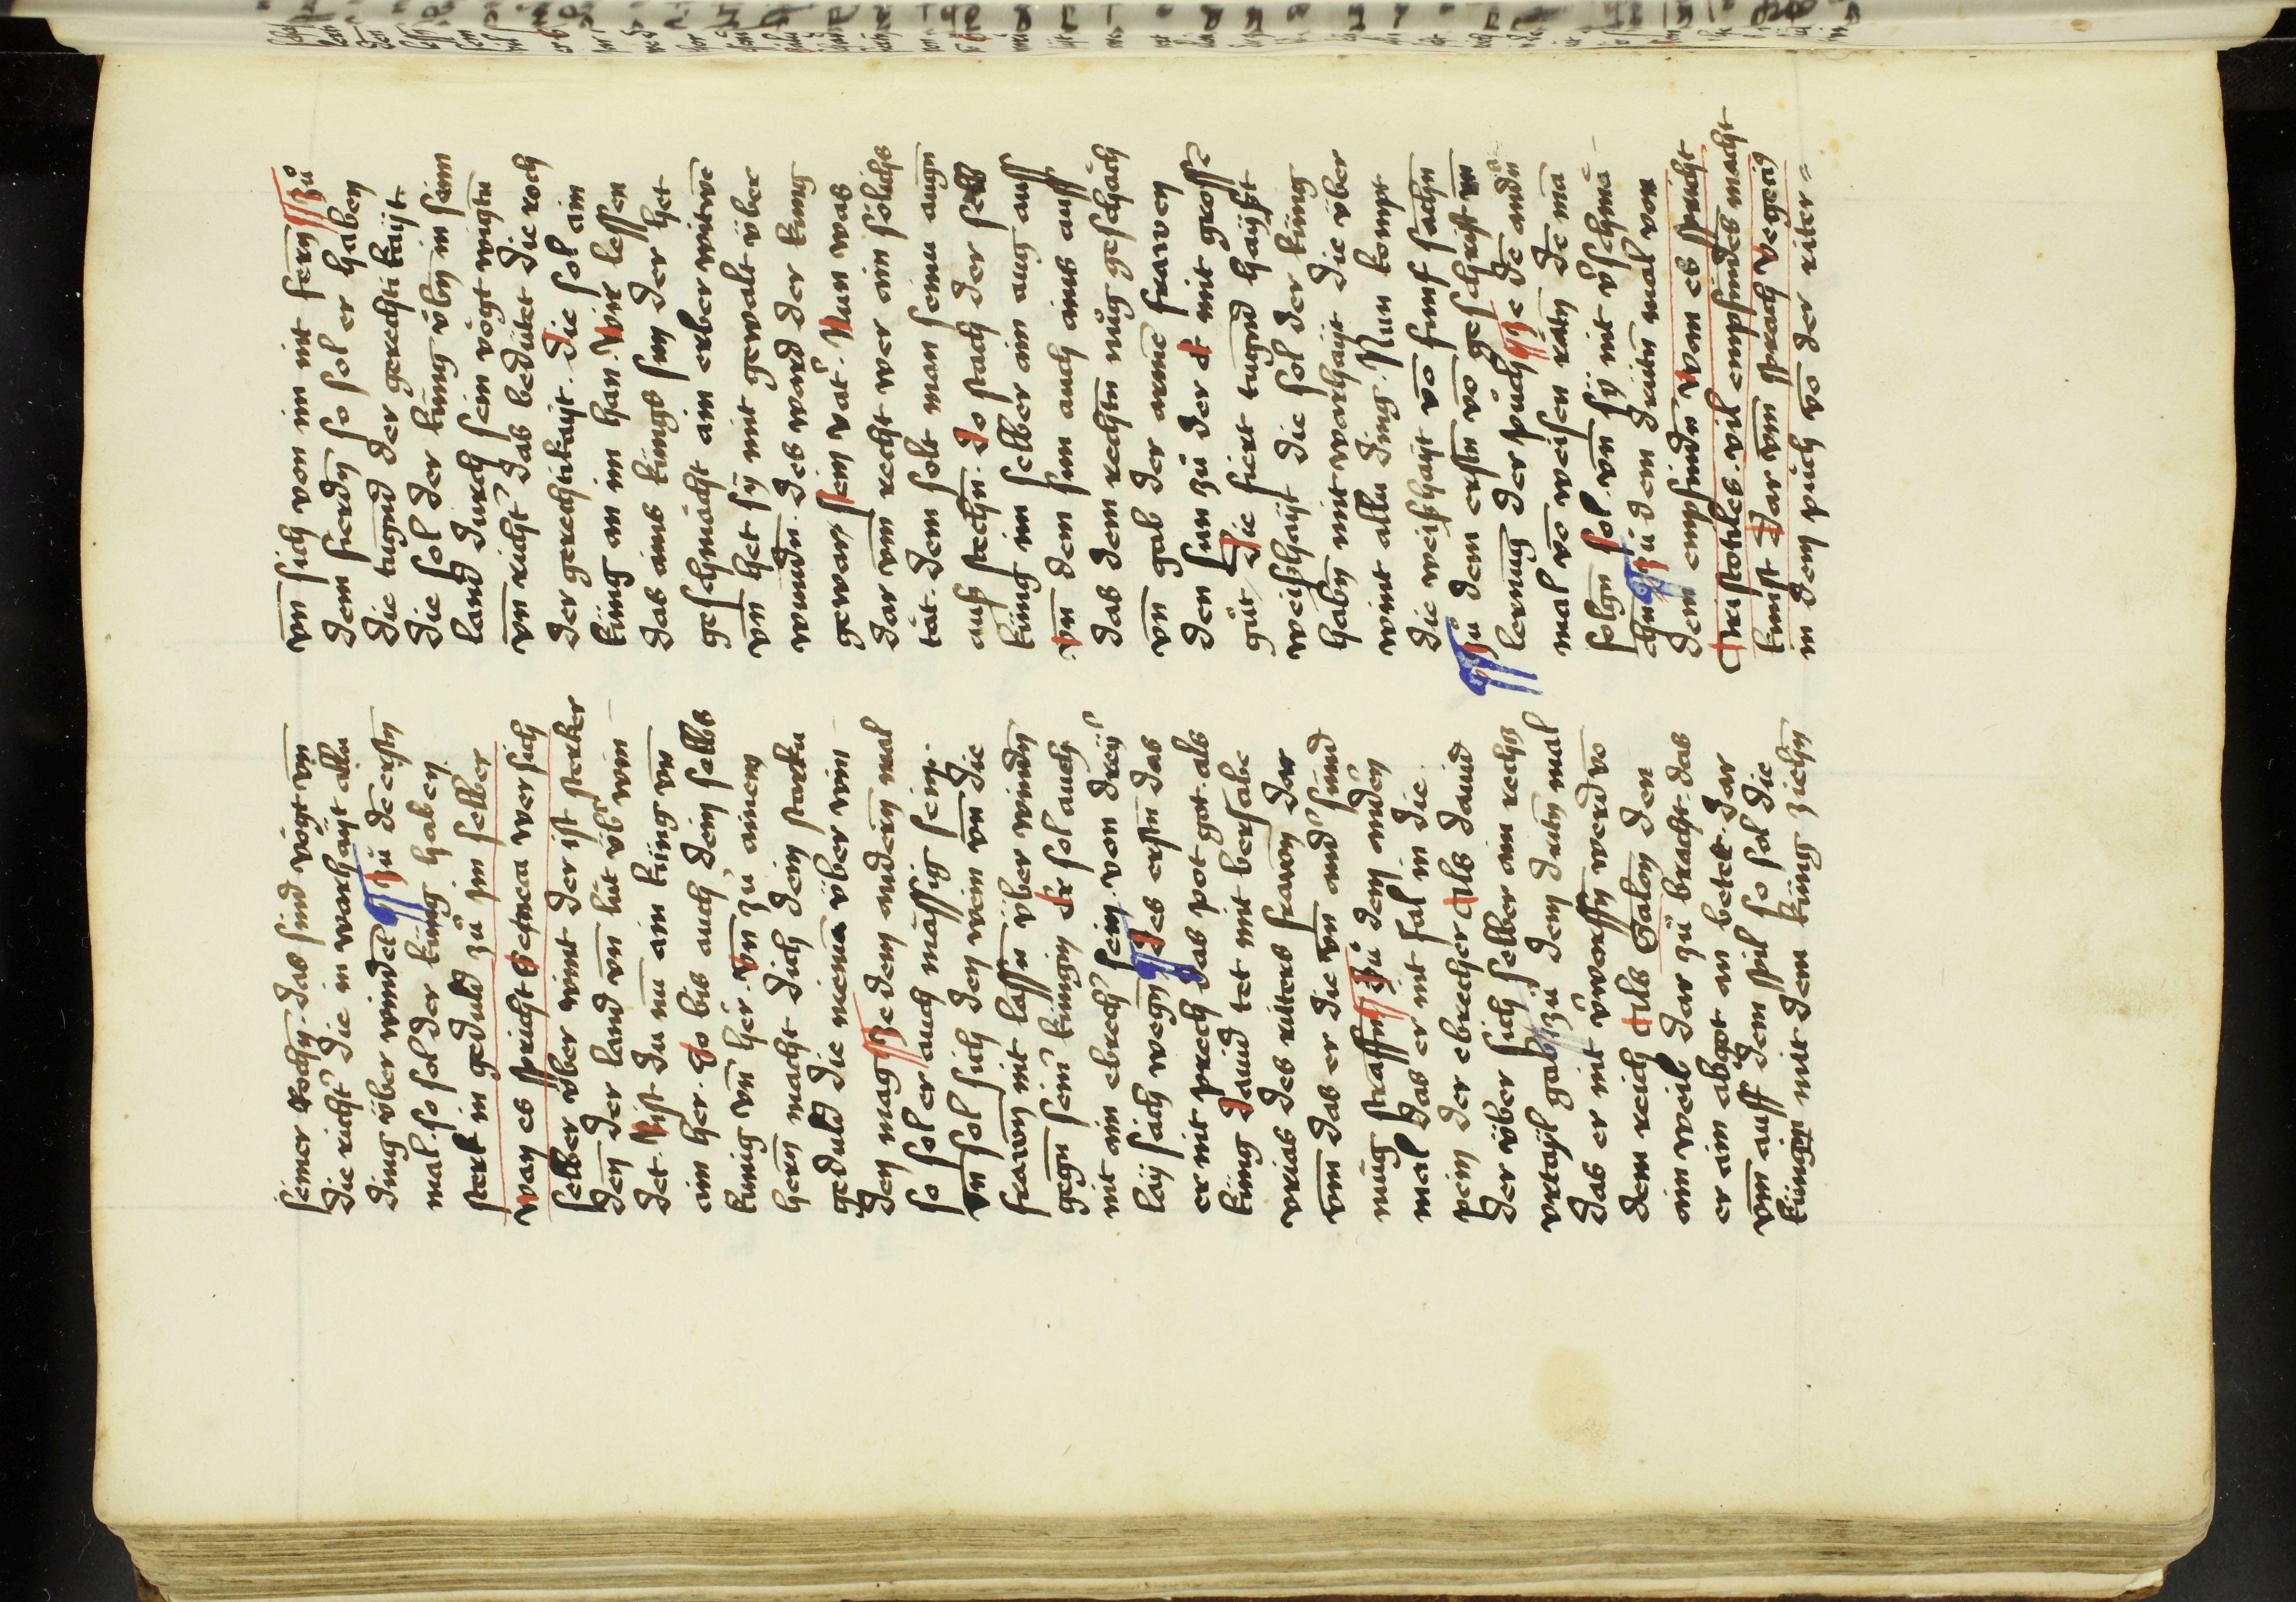 seiner rochen. das sind vögt vn̄
die richt͛ die in warhayt allu
ding über windet Zu dē erstn̄
mal. so sol der küng haben
sterk in geduld zů im selber
wan es spricht Seneca wer sich
selber über wint der ist sterker
den der land vn̄ lüt üb͛ win
det. Pist du nu ain küng vn̄
ain her. So bis auch dein selbs
küng vn̄ her. Vn̄ zů ainem
hern̄ macht dich dein starku
geduld die niemā über win
den mag Ze dem andern̄ mal
so sol er auch mässig sein.
vn̄ sol sich den wein vn̄ die
frawn̄ nit lassn̄ über windn̄
gegn̄ sein͛ küngin Er sol auch
nit ain ebrech͛ sein. von dreyͬ
lay sach wegn̄ Des erstn̄ das
er nit prech das pot got. als
küng dauid tet mit bersabe
vrias des ritters frawn̄ dar
vm̄ das er die vn̄ and͛ sünd
müg straffn̄ Zů dem andn̄
mal das er nit fal in die
pein der ebrecher Als dauid
der über sich selber ain rechtz
vrtayl gab zu dem dritn̄ mal
das er nit v͛worffn̄ werd vō
dem reich Als Salon̄ den
ain weib dar zů bracht. das
er ain abgot an betet. dar
vm̄ auff dem spil so sol die
küngin mit dem küng ziehn̄
vn̄ sich von im nit fern̄ Zů
dem fierdn̄ so sol er haben
die tugnd der gerechtikayt.
die sol der küng übn̄ in seim
land durch sein vögt wigtn̄
vn̄ richt͛ das bedütet die roch
der gerechtikayt. Die sol ain
küng an im han. Wir lessen
das ains küngs sun der het
geschmächt ain erber witwe
vn̄ het sy mit gewalt über
wundn̄. des ward der küng
gewar sein vat͛. Nun was
dar vm̄ recht wer ain sölichs
tät. dem solt man seinu augn̄
auß stechn̄. Do stach der selb
küng im selber ain aug auß
Vn̄ dem sun auch ains auff
das dem rechtn̄ nüg geschäch
vn̄ gab der armē frawen
den sun zů der E mit grosse͛
güt Die fiert tugnd hayßt
weißhayt die sol der küng
habn̄ mit warhayt die über
wint allu ding. Nun kompt
die weißhayt vō fünf sachn̄
Zů dem erstn̄ vō geschrift vn̄
lernug der půch Ze dē andn̄
mal vō weisen rätn̄ dē mā
folgn̄ sol. vn̄ sy nit v͛schmä
chn̄ Zů dem dritn̄ mal von
dem empfindn̄ Wan es spricht
Aristotiles. vil empfindes macht
kunst Dar vm̄ sprach Vegeciꝰ
in dem půch vō der riter=